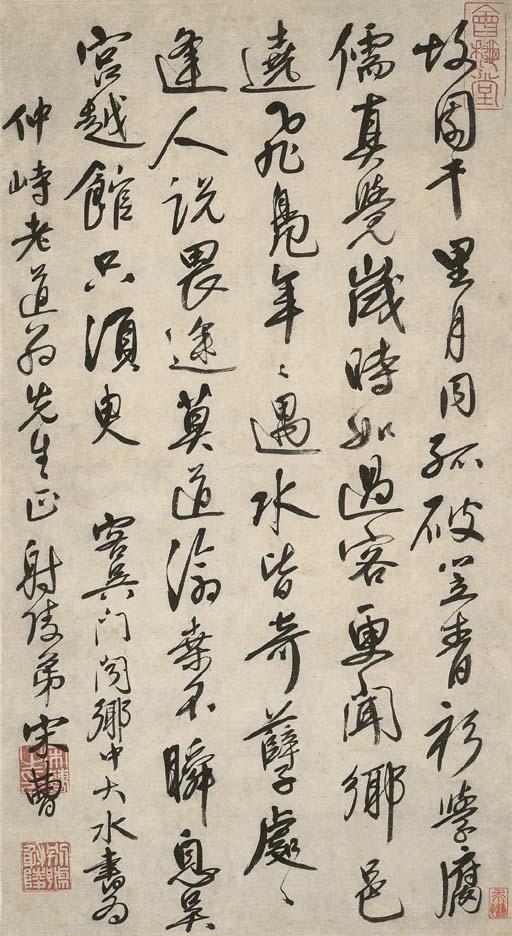 故園千里月同孤破笠青衫學腐
儒真覺歲時如過客更聞鄉邑
遶飛鳧年〻遇水皆奇孽處〻
逢人説畏途莫道滄桑不瞬息吴
宫越館只須臾
客吴門闻鄉中大水書為
仲峙老道翁先生正射陵弟宋曹